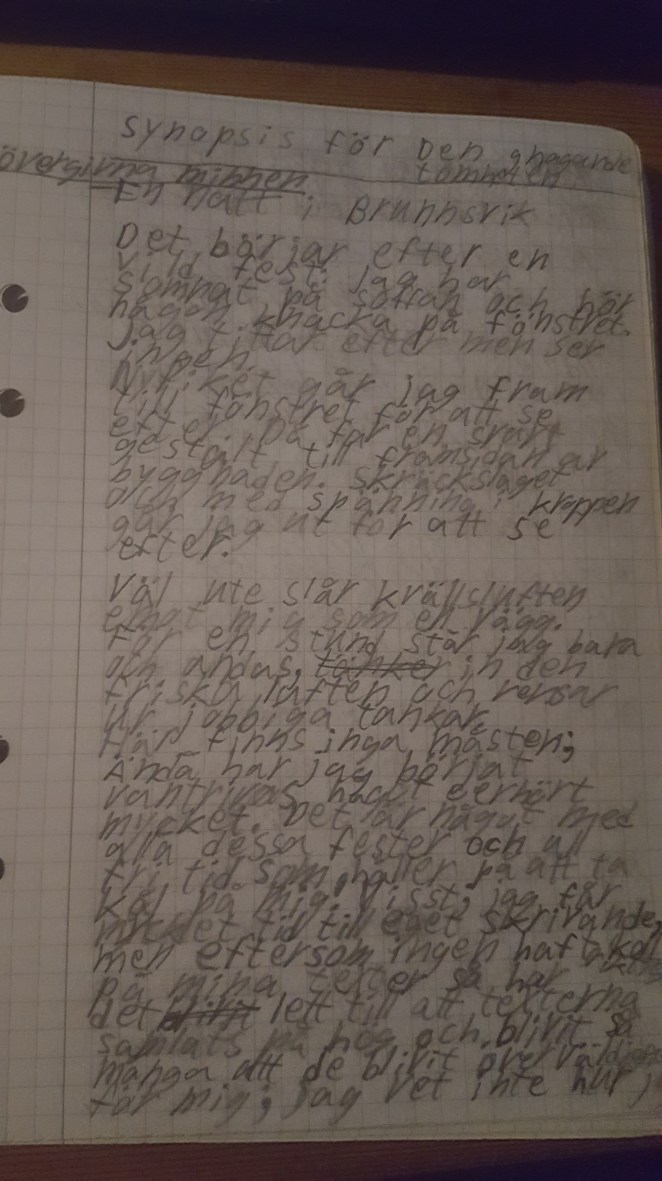 synopsis för Den gnagande
övergivna minnen tomheten
En natt i Brunnsvik
Det börjar efter en
vild fest: jag har
somnat på soffan och hör
någon knacka på fönstret.
Jag tittar efter men ser
ingen.
Nyfiket går jag fram
till fönstret för att se
efter. Då far en svart
gestalt till framsidan av
byggnaden. skräckslaget
och med spänning i kroppen
går jag ut för att se
efter.
Väl ute slår kvällsluften
emot mig som en vägg.
För en stund står jag bara
och andas, tänker in den
friska luften och rensar
ur jobbiga tankar.
Här finns inga måsten;
Ändå har jag börjat
vantrivas något oerhört
mycket. Det är något med
alla dessa fester och all
fri tid som håller på att ta
kål på mig. Visst, jag får
mycket tid till eget skrivande,
men eftersom ingen haft koll
på mina texter så har
det blivit lett till att texterna
samlats på hög och blivit så
många att de blivit
för mig; Jag vet inte hur j